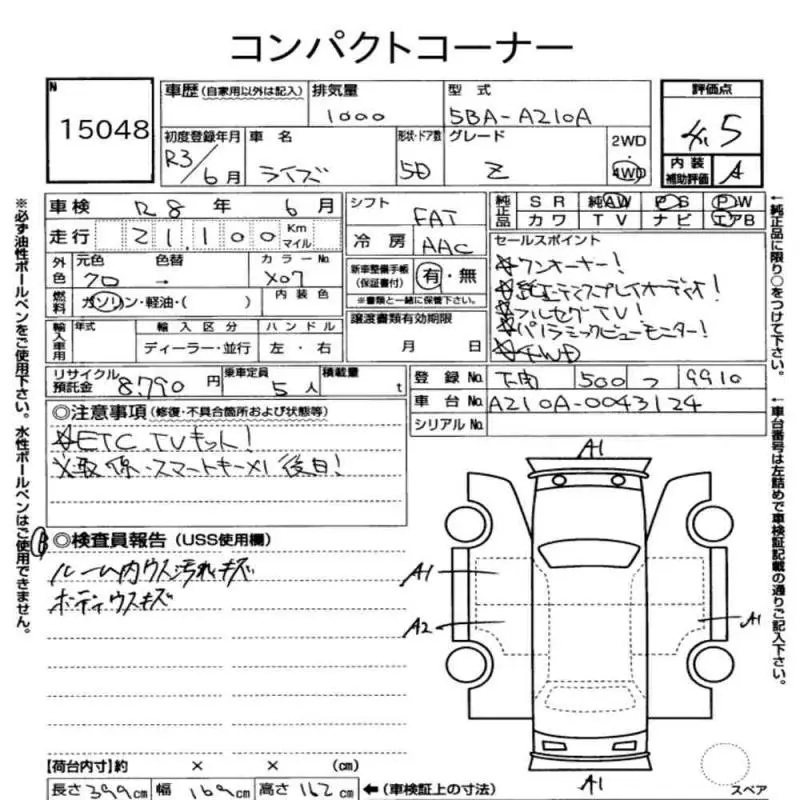 コンパクトコーナー
N
15048
車歴 (自家用以外は記入)
排気量
1000
型式
5BA-A210A
初度登録年月
R3/6月
車名
ライズ
形状・ドア数
5D
グレード
Z
2WD
4WD
評価点
4.5
内装
補助評価
A
車検 R8 年 6 月
走行 21,100 Km マイル
外色
元色 色替
クロ →
カラーNo
X07
燃料
ガソリン・軽油・( )
内装色
輸入車用
年式
輸入区分
ディーラー・並行
ハンドル
左・右
リサイクル預託金 8790 円
乗車定員 5 人
積載量 t
シフト
FAT
冷房 AAC
新車整備手帳
(保証書付)
有・無
※書類と一緒に保管下さい。
譲渡書類有効期限
月 日
純正品
SR 純AW PS PW
カワ TV ナビ エアB
セールスポイント
☆ワンオーナー!
☆純正ディスプレイオーディオ!
☆フルセグTV!
☆パノラミックビューモニター!
☆4WD
登録No. 500 つ 9910
車台No. A210A-0043124
シリアルNo.
◎注意事項 (修復・不具合箇所および状態等)
☆ETC、TVキット!
※取保・スマートキー×1後日!
◎検査員報告 (USS使用欄)
ルーム内ウス汚れキズ
ボディウスキズ
A1
A1
A2
A1
A1
スペア
【荷台内寸】約 × × (cm)
長さ399cm 幅169cm 高さ162cm ←(車検証上の寸法)
※必ず油性ボールペンをご使用下さい。水性ボールペンはご使用できません。
←純正品に限り○をつけて下さい。
←車台番号は左詰めで車検証記載の通りご記入下さい。